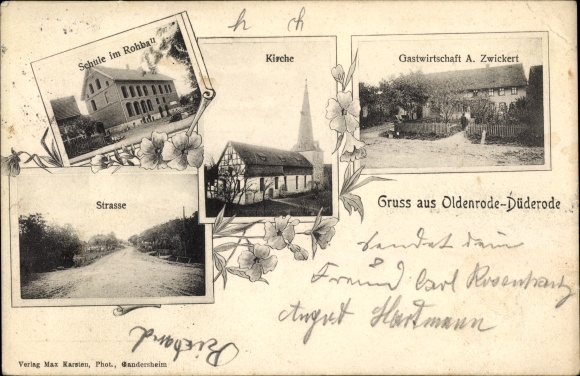 h ch
Schule im Rohbau
Kirche
Gastwirtschaft A. Zwickert
Strasse
Gruss aus Oldenrode-Düderode
sendet dein
Freund Carl Rosenkranz
August Hartmann
Richard
Verlag Max Karsten, Phot., Gandersheim